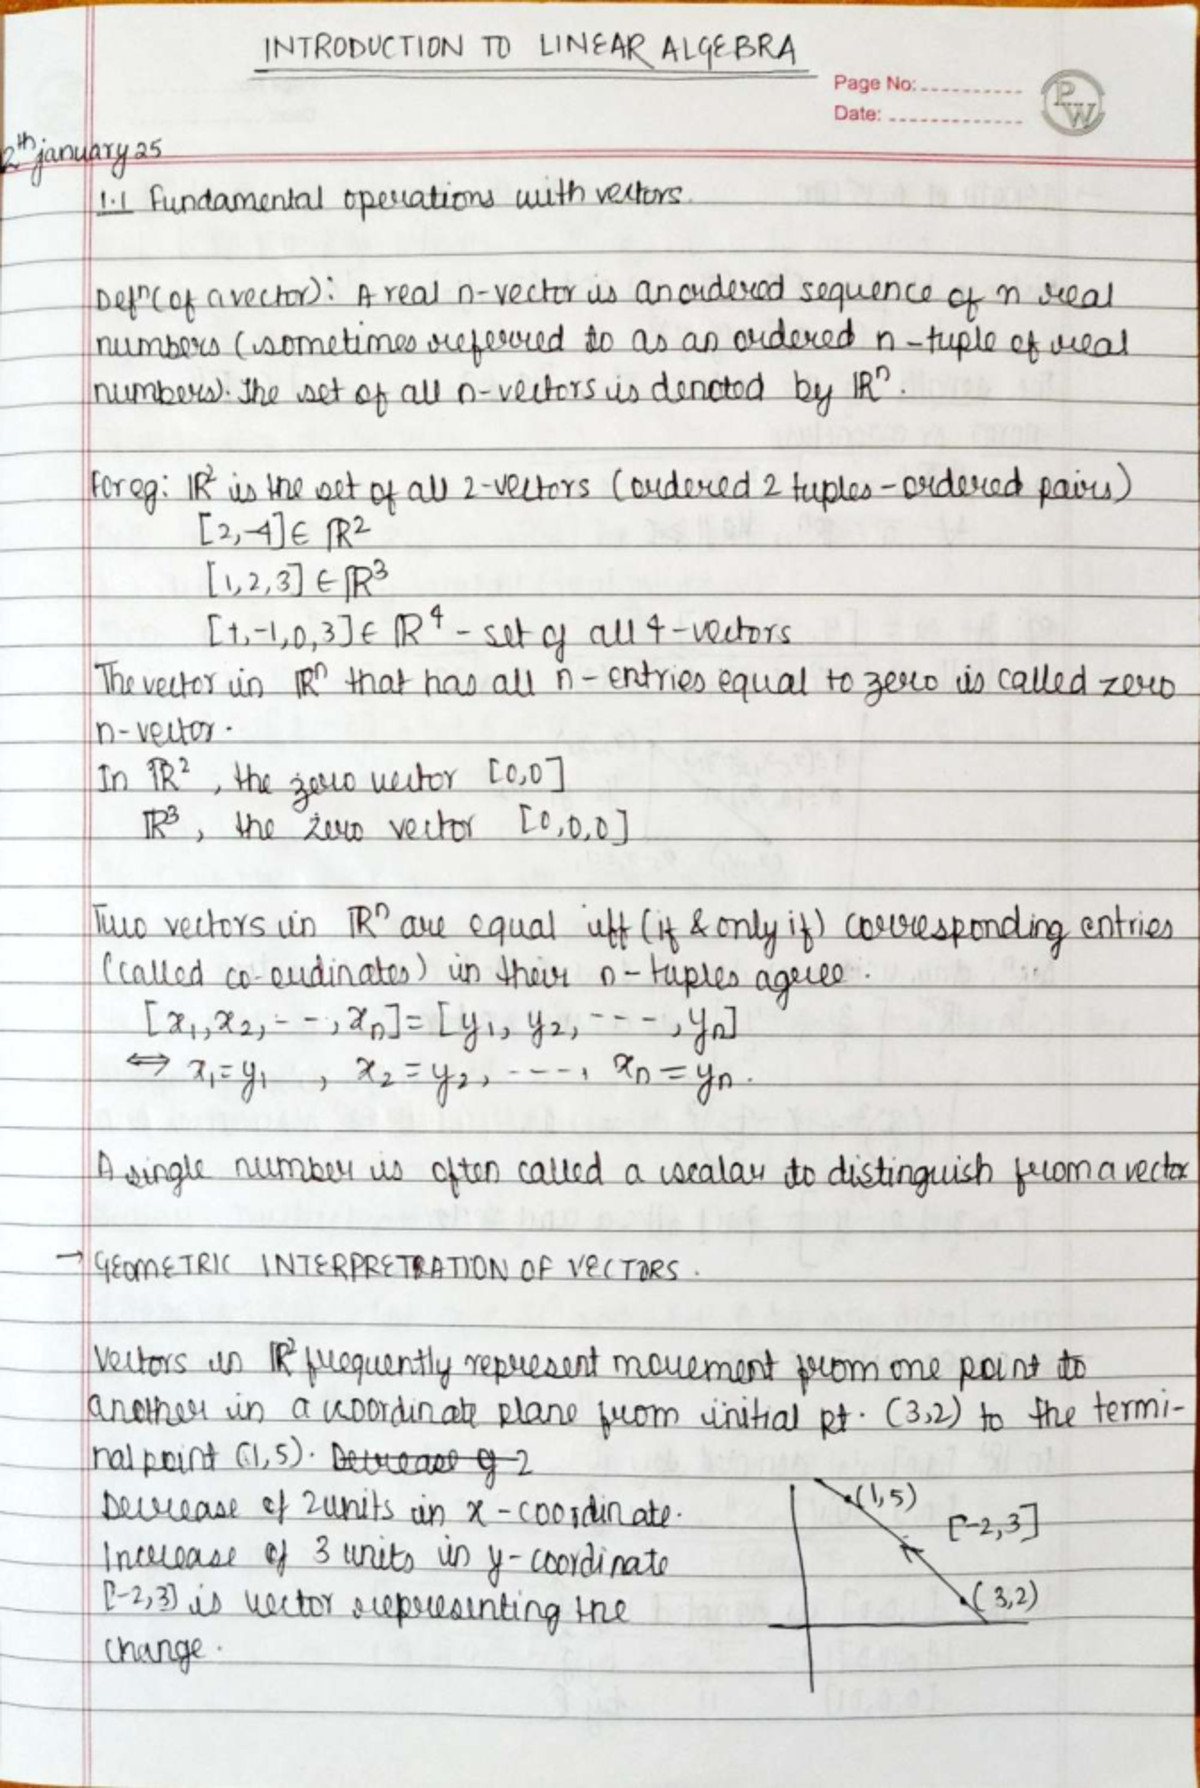 INTRODUCTION TO LINEAR ALGEBRA
Page No:
Date:
PW
2th january 25
1.1 Fundamental operations with vectors.
Defⁿ (of a vector): A real n-vector is an ordered sequence of n real
numbers (sometimes referred to as an ordered n-tuple of real
numbers). The set of all n-vectors is denoted by ℝⁿ.
For eg: ℝ² is the set of all 2-vectors (ordered 2 tuples - ordered pairs)
[2,-4] ∈ ℝ²
[1,2,3] ∈ ℝ³
[1,-1,0,3] ∈ ℝ⁴ - set of all 4-vectors
The vector in ℝⁿ that has all n-entries equal to zero is called zero
n-vector.
In ℝ², the zero vector [0,0]
ℝ³, the zero vector [0,0,0]
Two vectors in ℝⁿ are equal iff (if & only if) corresponding entries
(called co-ordinates) in their n-tuples agree.
[x₁,x₂,---,xₙ]=[y₁,y₂,----,yₙ]
⇔ x₁=y₁ , x₂=y₂,----, xₙ=yₙ.
A single number is often called a scalar to distinguish from a vector
→ GEOMETRIC INTERPRETRATION OF VECTORS.
Vectors in ℝ² frequently represent movement from one point to
another in a coordinate plane from initial pt. (3,2) to the termi-
nal point (1,5). Decrease of 2
Decrease of 2 units in x-coordinate.
Increase of 3 units in y-coordinate
[-2,3] is vector representing the
change.
(1,5)
[-2,3]
(3,2)